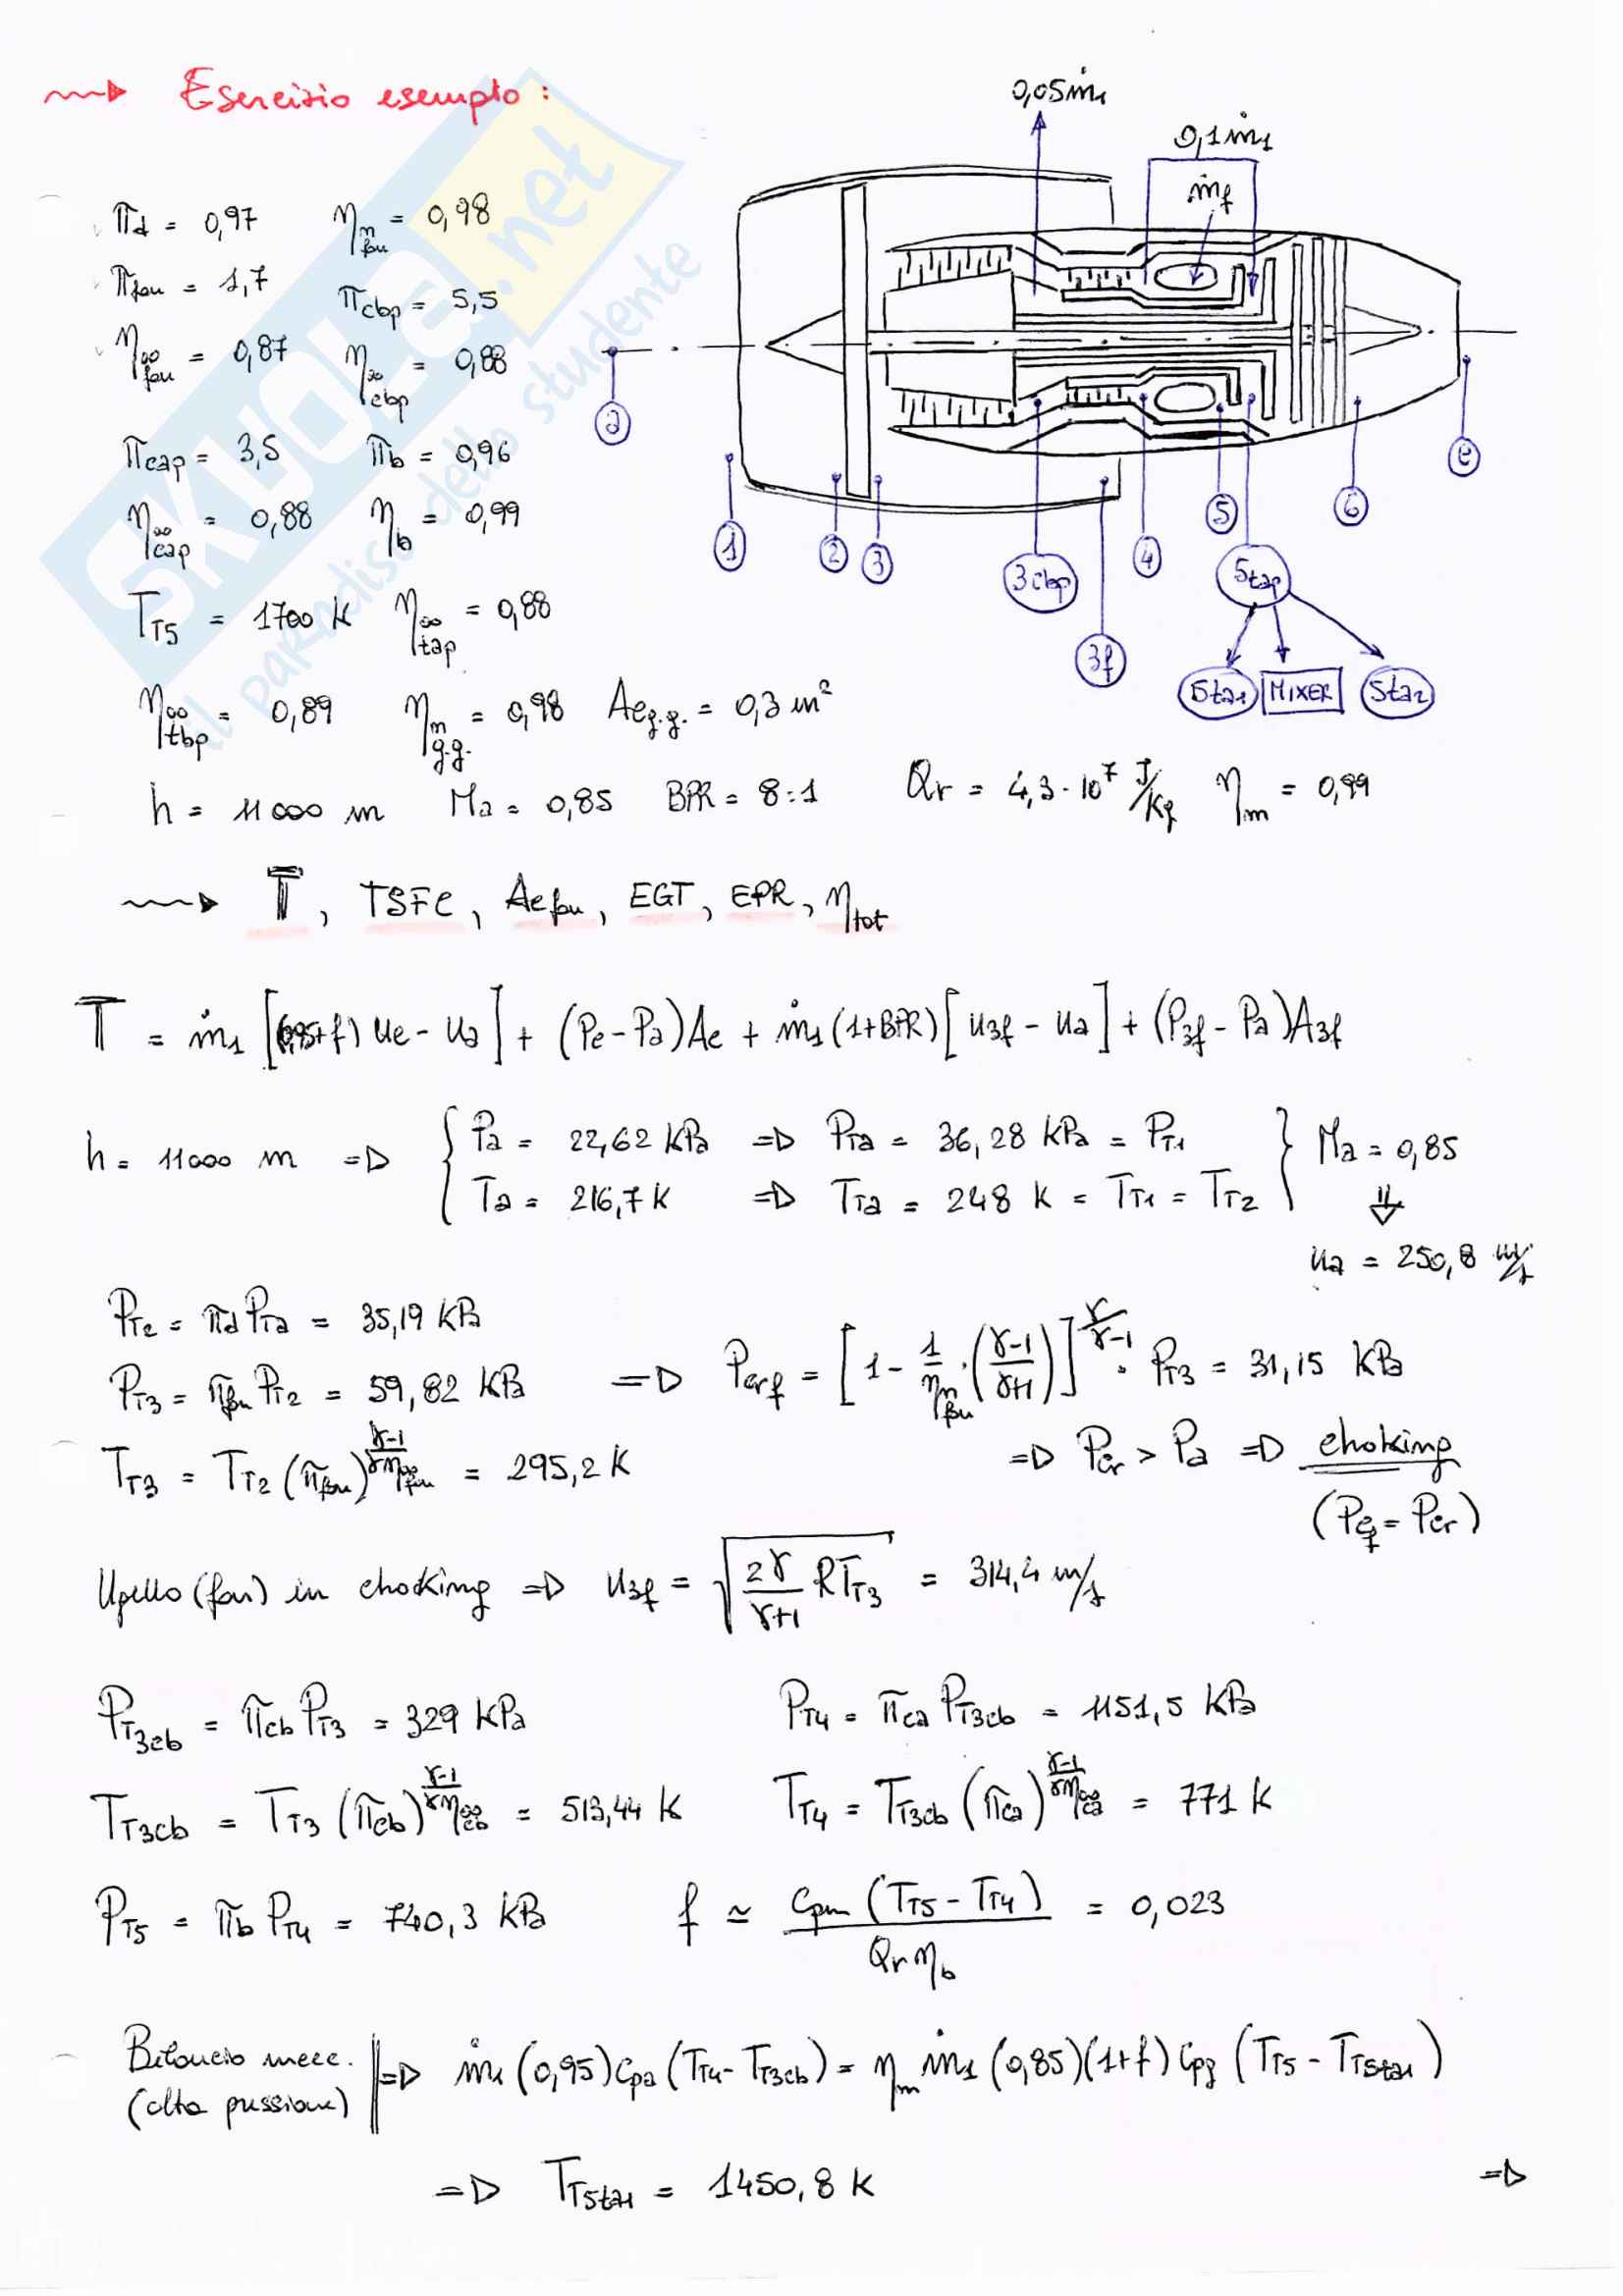 Esercizio esempio:
0,05ṁ₁
0,1ṁ₁
ṁf
π_d = 0,97 η_m fan = 0,98
π_fan = 1,7 π_cbp = 5,5
η∞ fan = 0,87 η∞ cbp = 0,88
π_cap = 3,5 π_b = 0,96
η∞ cap = 0,88 η_b = 0,99
T_T5 = 1700 K η∞ tap = 0,88
η∞ tbp = 0,89 η_m g.g. = 0,98 Ae g.g. = 0,3 m²
h = 11000 m Ma = 0,85 BPR = 8:1 Qr = 4,3·10⁷ J/kg η_m = 0,99
a
1
2
3
3cbp
3f
4
5
5tap
6
e
5ta1 MIXER 5ta2
T, TSFC, Ae fan, EGT, EPR, η_tot
T = ṁ₁[(0,95+f)ue - ua] + (Pe-Pa)Ae + ṁ₁(1+BPR)[u3f - ua] + (P3f - Pa)A3f
h = 11000 m ⇒ { Pa = 22,62 kPa ⇒ P_Ta = 36,28 kPa = P_T1 } Ma = 0,85
Ta = 216,7 K ⇒ T_Ta = 248 K = T_T1 = T_T2 ⇓
ua = 250,8 m/s
P_T2 = π_d P_Ta = 35,19 kPa
P_T3 = π_fan P_T2 = 59,82 kPa ⇒ Pcrf = [1 - 1/η_m fan · ((γ-1)/(γ+1))]^(γ/(γ-1)) · P_T3 = 31,15 kPa
T_T3 = T_T2 (π_fan)^((γ-1)/(γη∞ fan)) = 295,2 K ⇒ Pcr > Pa ⇒ choking
(Pef = Pcr)
Ugello (fan) in choking ⇒ u3f = √(2γ/(γ+1) R T_T3) = 314,4 m/s
P_T3cb = π_cb P_T3 = 329 kPa P_T4 = π_ca P_T3cb = 1151,5 kPa
T_T3cb = T_T3 (π_cb)^((γ-1)/(γη∞ cb)) = 513,44 K T_T4 = T_T3cb (π_ca)^((γ-1)/(γη∞ ca)) = 771 K
P_T5 = π_b P_T4 = 740,3 kPa f ≃ Cpm (T_T5 - T_T4) / Qr η_b = 0,023
Bilancio mecc. (alta pressione) ‖⇒ ṁ₁(0,95)Cpa(T_T4 - T_T3cb) = η_m ṁ₁(0,85)(1+f)Cpg(T_T5 - T_T5ta1)
⇒ T_T5ta1 = 1450,8 K ⇒
SKUOLA.net
il paradiso dello studente